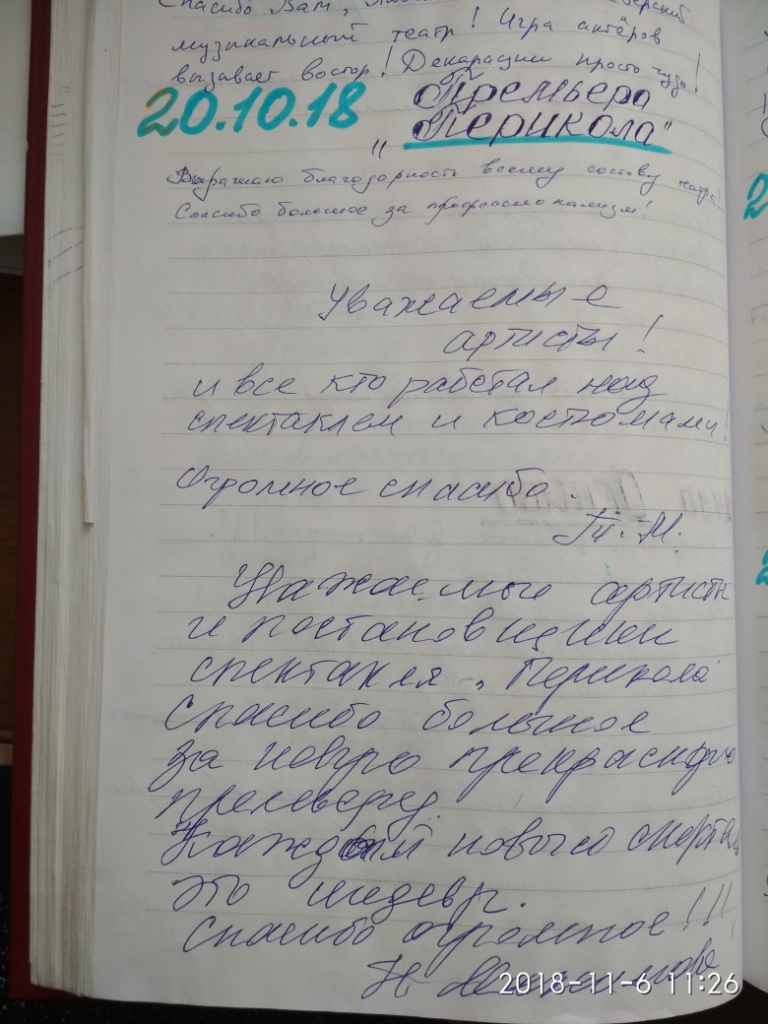 Спасибо Вам,
музыкальный театр! Игра актёров
вызывает востор! Декарации просто чудо!
20.10.18 Премьера
"Перикола"
Выражаю благодарность всему составу театра!
Спасибо большое за профессионализм!
Уважаемые
артисты!
и все кто работал над
спектаклем и костюмами!
Огромное спасибо.
Т. М.
Уважаемые артисты
и постановщики
спектакля „Перикола"
Спасибо большое
за новую прекрасную
премьеру.
Каждый новый
это шедевр.
Спасибо огромное!!!
Н
2018-11-6 11:26